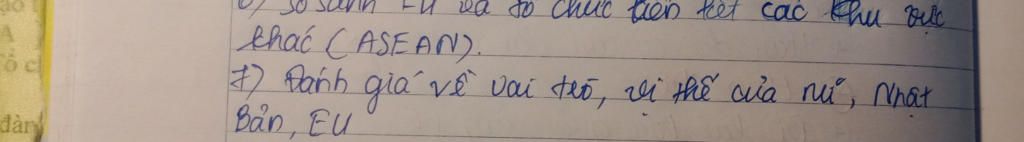 6) So sánh EU và tổ chức liên kết các khu vực
khác (ASEAN).
7) Đánh giá về vai trò, vị thế của mĩ, Nhật
Bản, EU
đàn